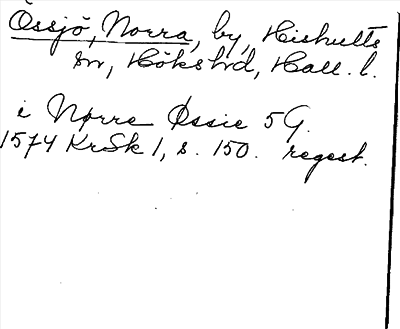 Össjö, Norra, by, Hishults
sn, Höks hd, Hall. l.
i Nørre Øssie 5 G.
1574 KrSk 1, s. 150. regest.